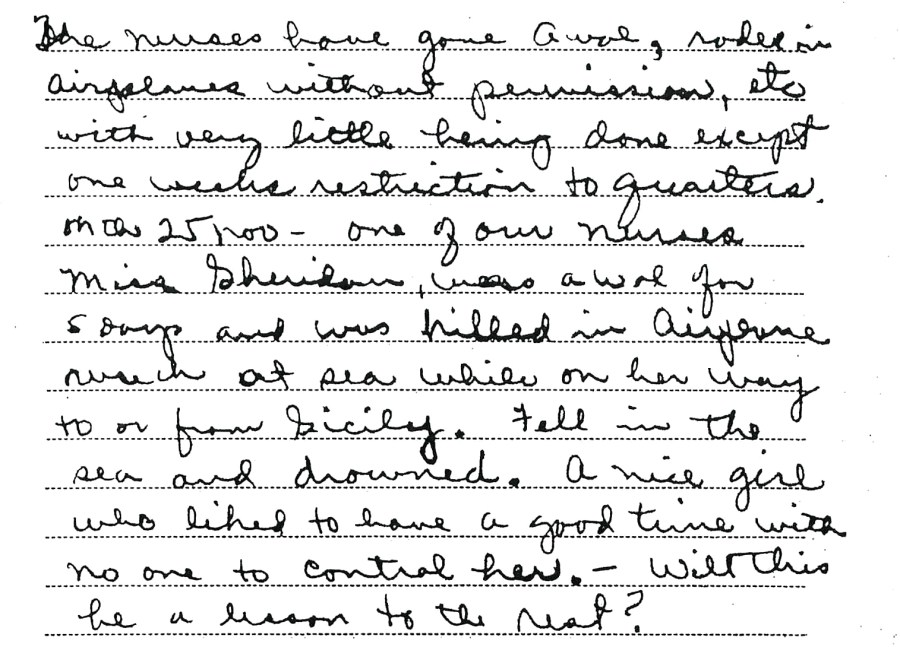 The nurses have gone Awol, rodes in
airplanes without permission, etc
with very little being done except
one weeks restriction to quarters.
on the 25 Nov - one of our nurses
Miss Sheridan, was awol for
5 days and was killed in Airplane
at sea while on her way
to or from Sicily. Fell in the
sea and drowned. A nice girl
who liked to have a good time with
no one to control her. - Will this
be a lesson to the rest?